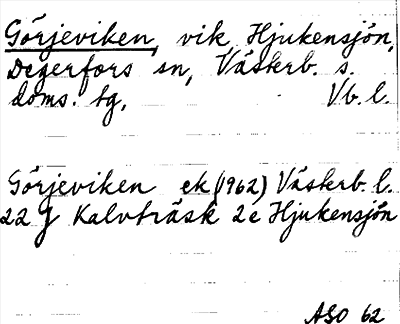 Görjeviken, vik, Hjukensjön,
Degerfors sn, Västerb. s.
doms. tg, Vb. l.
Görjeviken ek (1962) Västerb. l.
22 J Kalvträsk 2e Hjukensjön
ASO 62